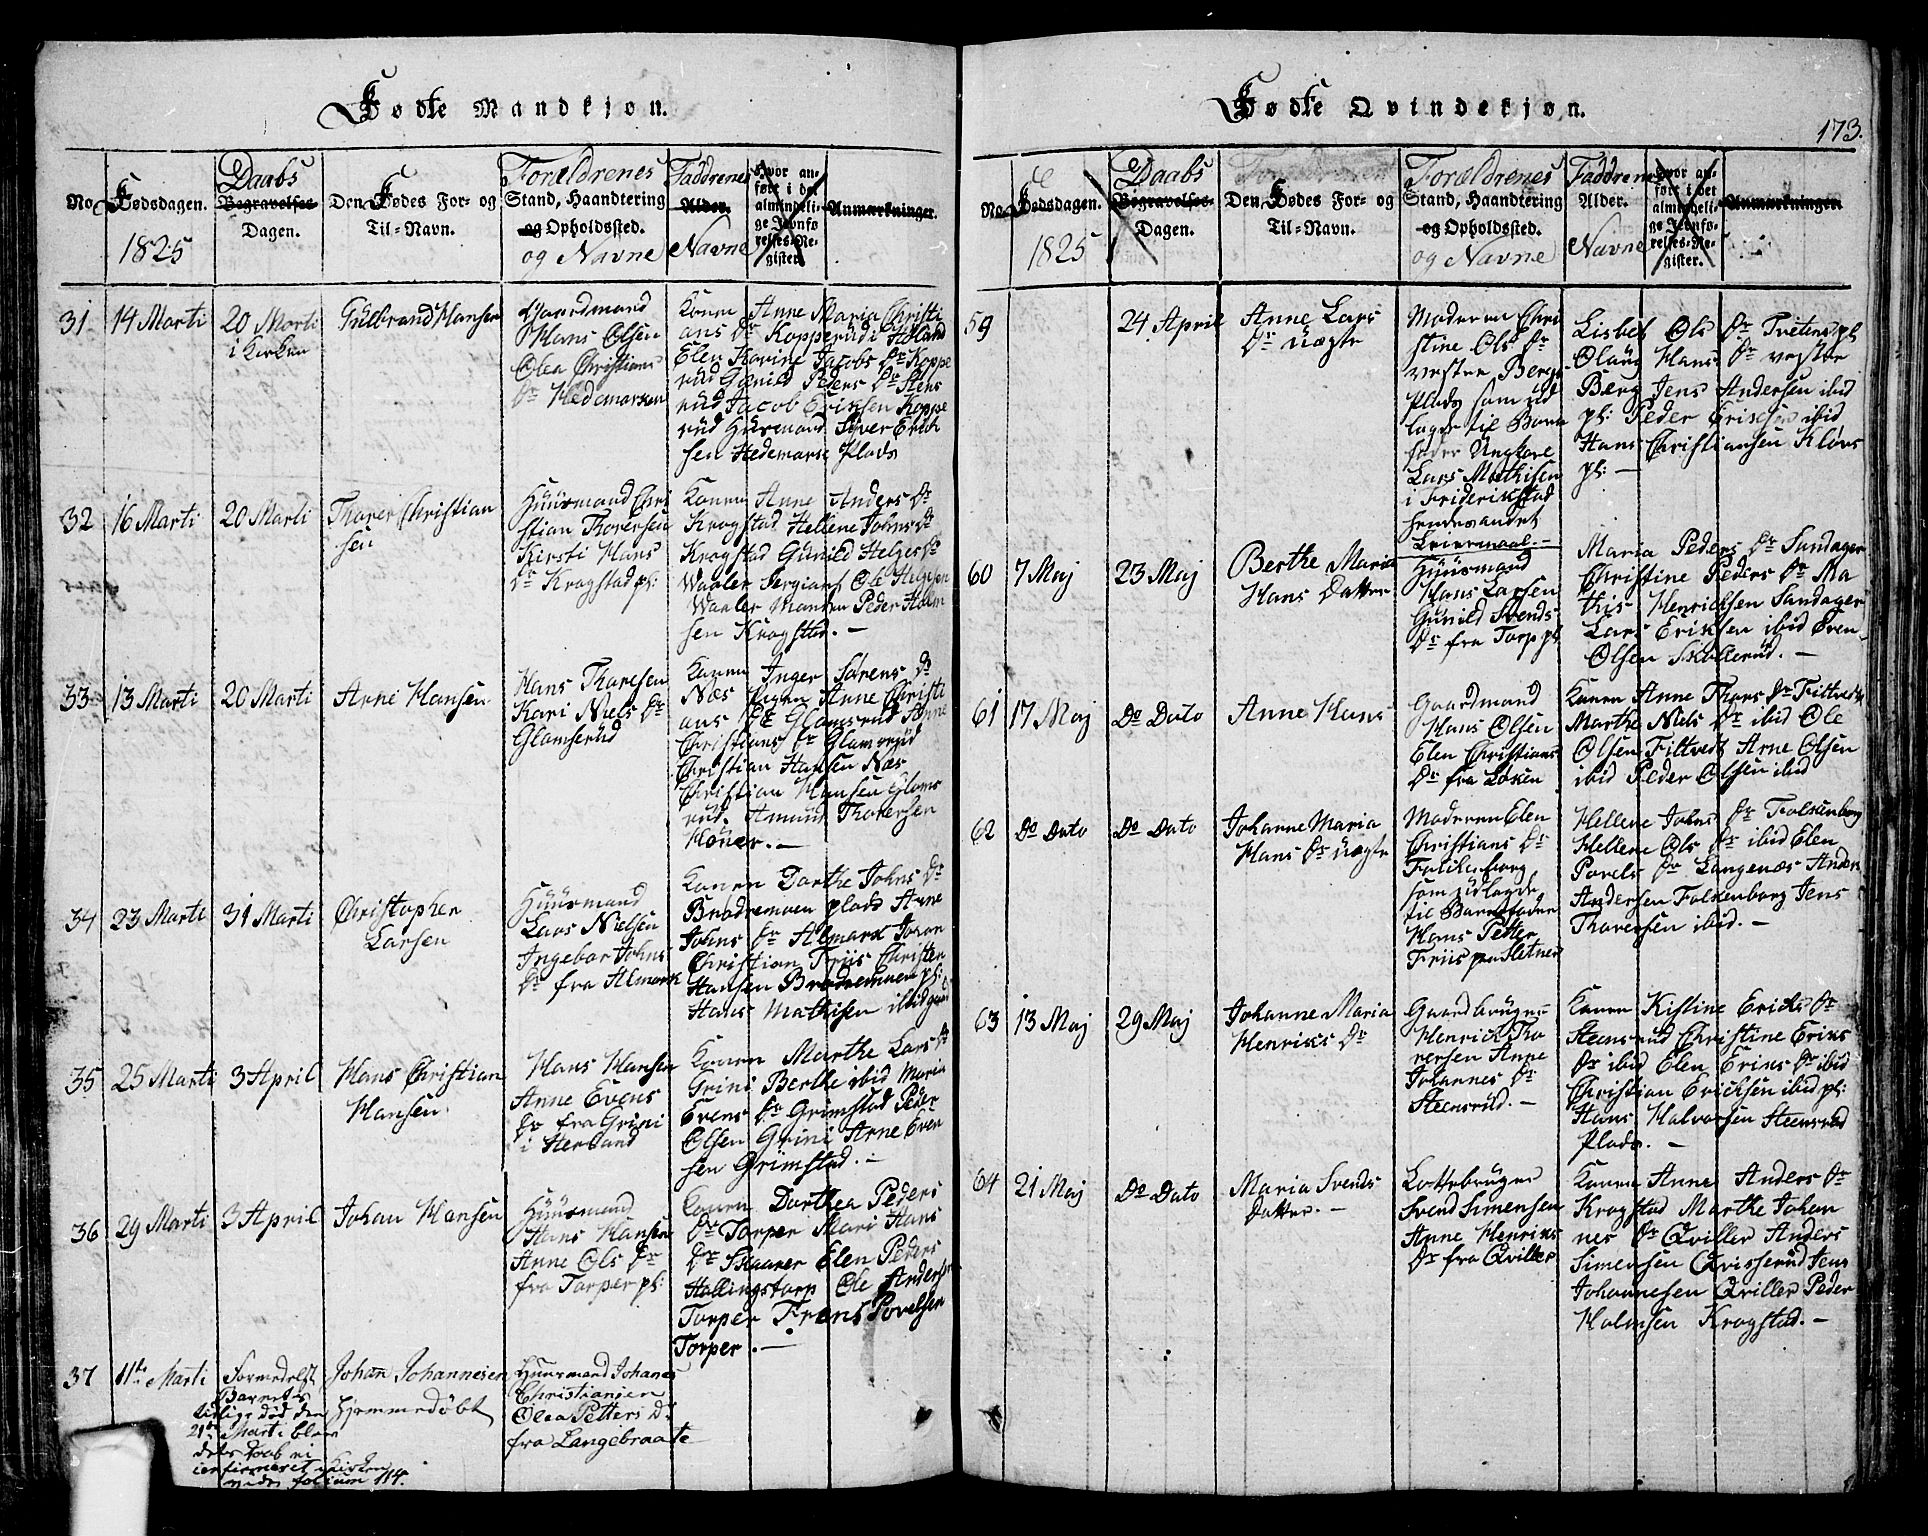 Fødte Mandkjøn.
No.
Fødsdagen.
1825
Daabs
Begravelses-
Dagen.
Den Fødes For- og
Til-Navn.
Forældrenes
Stand, Haandtering
og Opholdssted.
og Navne
Faddrenes
Alder.
Navne
Hvor an-
ført i det
almindeli-
ge Jevnfø-
relses-Re-
gister.
Anmærkninger.
31
14 Marti
20 Marti
i Kirken
Gulbrand Hansen
Gaardmand
Hans Olsen
Olea Christians
Dr Hedemarken
Konen Anne Maria Christi
ans Dr Kopperud i Høland
Elen Karine Jacobs Dr Koppe
rud Gunild Peders Dr Stens
rud Jacob Eriksen Koppe
rud Huusmand Siver Erich
sen Hedemark Plads
32
16 Marti
20 Marti
Thorer Christian
sen
Huusmand Chri
stian Thoresen
Kirsti Hans
Dr Krogstad pl:
Konen Anne Anders Dr
Krogstad Hellene Johns Dr
Krogstad Gunild Helges Dr
Waaler Sergiant Ole Helgesen
Waaler Manden Peder Holm
sen Krogstad. —
33
13 Marti
20 Marti
Arne Hansen
Hans Thoresen
Kari Niels Dr
Glamserud
Konen Inger Sørens Dr
Næs Pigen Anne Christi
ans Dr Glamsrud Anne
Christians Dr Glamsrud
Christian Hansen Næs
Christian Hansen Glams
rud. Amund Thoresen
Høner. —
34
23 Marti
31 Marti
Christopher
Larsen
Huusmand
Lars Nielsen
Ingebor Johns
Dr fra Almark
Konen Dorthe Johns Dr
Brødremoen plads Anne
Johns Dr Almark Johan
Christian Friis Christen
Hansen Brødremoen pl:
Hans Mathisen ibid
35
25 Marti
3 April
Hans Christian
Hansen
Hans Hansen
Anne Evens
Dr fra Grini
i Herland
Konen Marthe Lars Dr
Grini Berthe ibid Maria
Evens Dr Grimstad Peder
Olsen Grini Arne Even
sen Grimstad. —
36
29 Marti
3 April
Johan Hansen
Huusmand
Hans Hansen
Anne Ols Dr
fra Torper pl:
Konen Dorthea Peders
Dr Torper Mari Hans
Dr Skaarer Elen Peders
Hallingstorp Ole Andersen
Torper Frens Povelsen
Torper. —
37
11te Marti
Formedelst
Barnets
tidlige død den
21de Marti blev
dets Daab ei
confirmeret i Kirken
vide folium 114.
Johan Johannesen
Hjemmedøbt
Huusmand Johanes
Christiansen
Olea Petters D:
fra Langebraate
Fødte Qvindekjøn.
173.
No.
Fødsdagen.
1825
Daabs
Begravelses-
Dagen.
Den Fødes For- og
Til-Navn.
Forældrenes
Stand, Haandtering
og Opholdssted.
og Navne
Faddrenes
Alder.
Navne
Hvor an-
ført i det
almindeli-
ge Jevnfø-
relses-Re-
gister.
Anmærkninger.
59
24 April
Anne Lars
Dr uægte
Moderen Chri
stine Ols Dr
vestre Bergs
Plads som ud
lager til Barne
fader Ungkarl
Lars Mathisen
i Friderikstad
hendes andet
Leiermaal. —
Lisbet Ols Dr Tvetens pl
Olaug Hans Dr vestre
Berg Jens Andersen ibid
pl: Peder Eriksen ibid
Hans Christiansen Kløvs
pl: —
60
7 Maj
23 Maj
Berthe Maria
Hans Datter
Huusmand
Hans Larsen
Gunild Svends
Dr fra Torp pl
Maria Peders Dr Sandager
Christine Peders Dr Ma
this Henricksen Sandager
Lars Eriksen ibid Even
Olsen Skollerud. —
61
17 Maj
Do Dato
Anne Hans
Gaardmand
Hans Olsen
Elen Christians
Dr fra Løken
Konen Anne Thors Dr Filtvedt
Marthe Niels Dr ibid Ole
Olsen Filtvedt Arne Olsen
ibid Peder Olsen ibid
62
Do Dato
Do Dato
Johanne Maria
Hans Dr uægte
Moderen Elen
Christians Dr
Falckenborg
som udlagde
til Barnefader
Hans Petter
Friis paa Sletner
Hellene Johns Dr Folkenborg
Hellene Ols Dr ibid Elen
Povels Dr Langenæs Anders
Andersen Folkenborg Jens
Thoresen ibid. —
63
13 Maj
29 Maj
Johanne Maria
Henriks Dr
Gaardbruger
Henrick Tho
resen Anne
Johannes Dr
Steensrud. —
Konen Kistine Ericks Dr
Steensrud Christine Eriks
Dr ibid Elen Eriks Dr ibid
Christian Ericksen ibid pl:
Hans Halvorsen Steensrud
Plads. —
64
21 Maj
Do Dato
Maria Svends
Datter. —
Lottebruger
Svend Simensen
Anne Henriks
Dr fra Qviller
Konen Anne Anders Dr
Krogstad Marthe Johan
nes Dr Qviller Anders
Simensen Qvisserud Jens
Johannesen Qviller Peder
Holmsen Krogstad. —